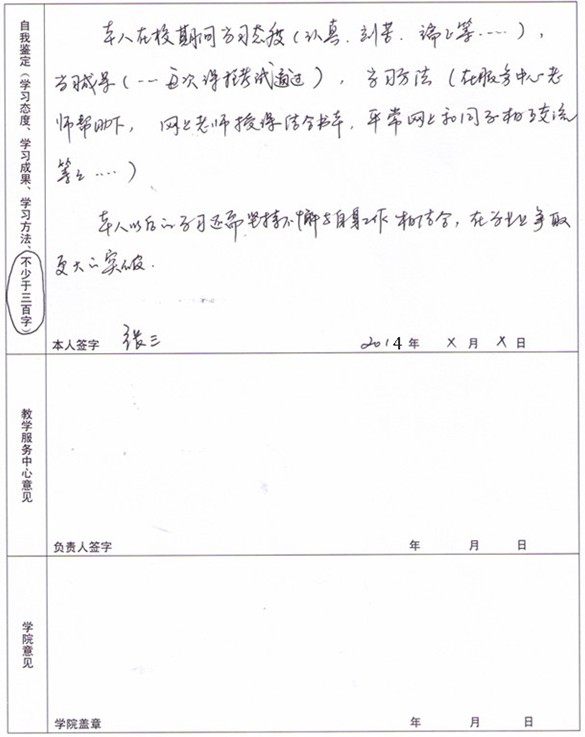 自我鉴定（学习态度、学习成果、学习方法、不少于三百字）
本人在校期间学习态度（认真、刻苦、端正等……），
学习成果（一次课程考试通过），学习方法（在服务中心老
师帮助下，网上老师授课结合书本，平常网上和同学相互交流
等等……）
本人以后的学习还需坚持不懈与自身工作相结合，在学业争取
更大的突破.
本人签字 张三 2014 年 X 月 X 日
教学服务中心意见
负责人签字 年 月 日
学院意见
学院盖章 年 月 日